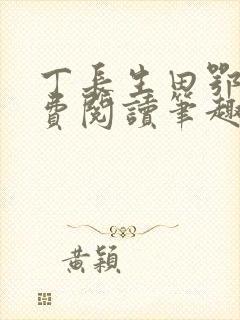 丁長生田鄂
費閱讀筆趣
黃穎